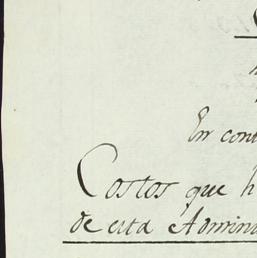 En con
Costos que h
de esta Admin